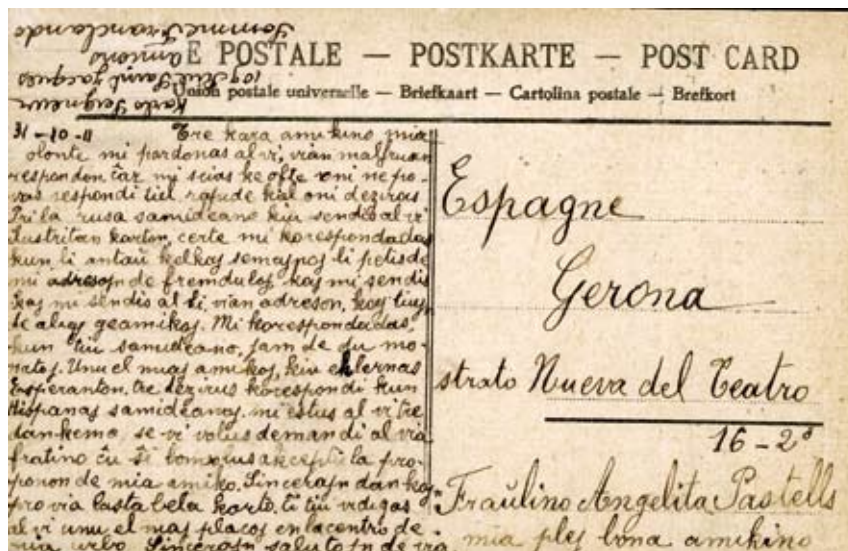 Karlo Seigneur
109 Rue Saint Jacques
Amiens
Somme Franclando
E POSTALE — POSTKARTE — POST CARD
Union postale universelle — Briefkaart — Cartolina postale — Brefkort
31-10-11 Tre kara amikino mia
volonte mi pardonas al vi, vian malfruan
respondon, ĉar mi scias ke ofte oni ne po-
vas respondi tiel rapide kiel oni deziras
Pri la rusa samideano kiu sendis al vi
ilustritan karton, certe mi korespondadas
kun li antaŭ kelkaj semajnoj li petis de
mi adresojn de fremduloj kaj mi sendis
kaj mi sendis al li, vian adreson, kaj tiujn
de aliaj geamikoj. Mi korespondadas,
kun tiu samideano, jam de du mo-
natoj. Unu el miaj amikoj, kiu eklernas
Esperanton, tre dezirus korespondi kun
Hispanaj samideanoj, mi estus al vi tre
dankema, se vi volus demandi al via
fratino ĉu ŝi bonvolus akcepti la pro-
ponon de mia amiko. Sincerajn dankojn
pro via lasta bela karto, ĉi tiu vidigas
al vi unu el niaj placoj en la centro de
mia urbo. Sincerajn salutojn de via
Espagne
Gerona
strato Nueva del Teatro
16-2º
Fraŭlino Angelita Pastells
mia plej bona amikino